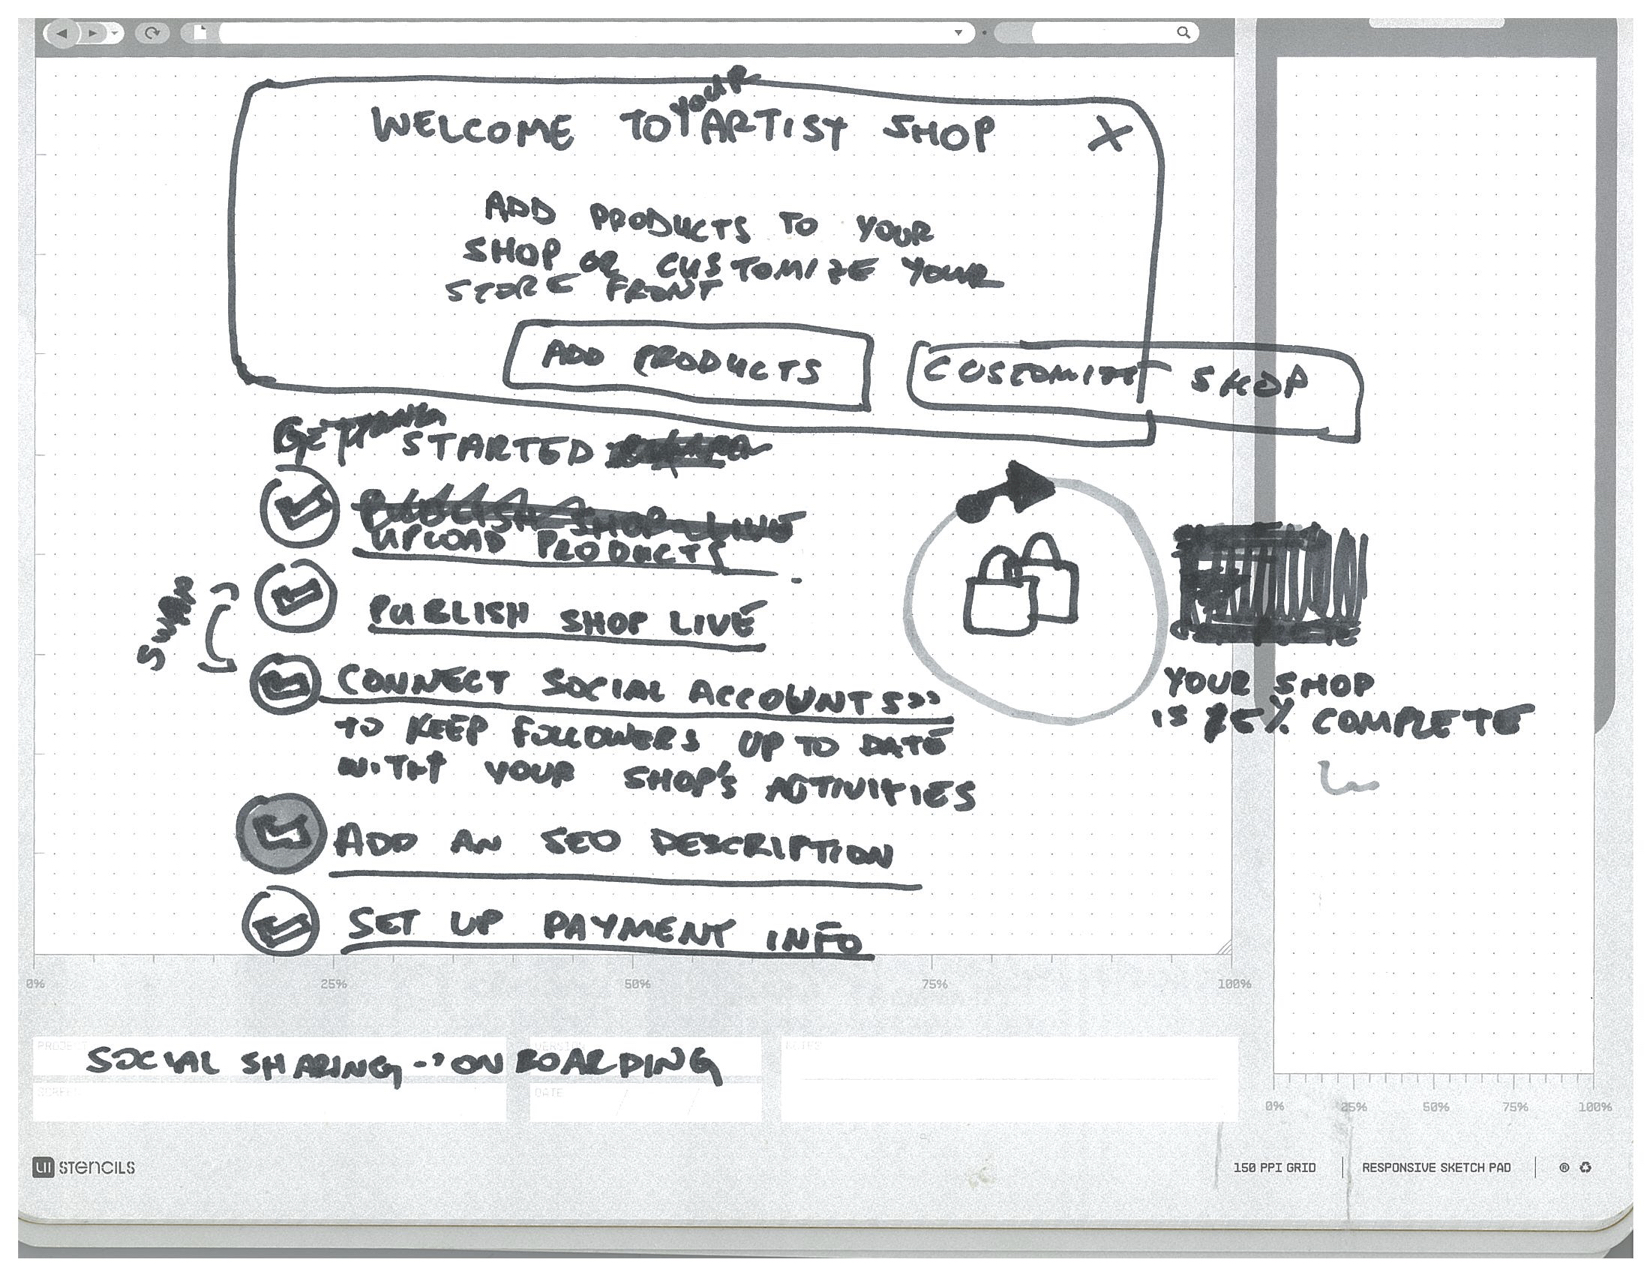 WELCOME TO YOUR ARTIST SHOP X
ADD PRODUCTS TO YOUR
SHOP OR CUSTOMIZE YOUR
STORE FRONT
ADD PRODUCTS
CUSTOMIZE SHOP
GETTING STARTED
PUBLISH SHOP LIVE
UPLOAD PRODUCTS
SWAP
PUBLISH SHOP LIVE
CONNECT SOCIAL ACCOUNTS>>
TO KEEP FOLLOWERS UP TO DATE
WITH YOUR SHOP'S ACTIVITIES
ADD AN SEO DESCRIPTION
SET UP PAYMENT INFO
COMPLETE
YOUR SHOP
IS 25% COMPLETE
0% 25% 50% 75% 100%
SOCIAL SHARING -> ONBOARDING
PROJECT
VERSION
NOTES
SCREEN
DATE
0% 25% 50% 75% 100%
UI STENCILS
150 PPI GRID | RESPONSIVE SKETCH PAD | ®